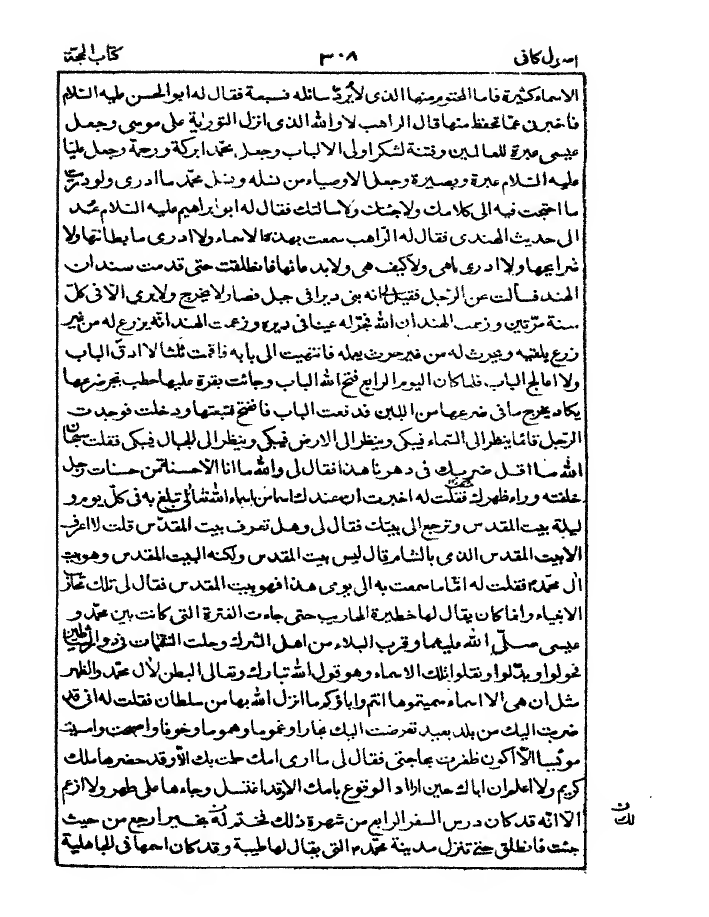 اصول كافى ٣٠٨ كتاب الحجة
الاسماء كثيرة فاما المحتوم منها الذى لا يُردّ سائله فسبعة فقال له ابو الحسن عليه السّلام
فاخبرنى عمّا تحفظ منها قال الراهب لا والله الذى انزل التورية على موسى وجعل
عيسى عبرة للعالمين وفتنة لشكر اولى الالباب وجعل محمّدا بركة ورحمة وجعل عليا
عليه السّلام عبرة وبصيرة وجعل الاوصياء من نسله ونسل محمّد ما ادرى ولو دريت
ما احتجت فيه الى كلامك ولا جئتك ولا سالتك فقال له ابو ابراهيم عليه السّلام عُد
الى حديث الهندى فقال له الرّاهب سمعت بهذه الاسماء ولا ادرى ما بطانتها ولا
شرايعها ولا ادرى ما هى ولا كيف هى ولا بدعائها فانطلقت حتى قدمت سندان
الهند فسألت عن الرّجل فقيل لى انه بنى ديرا فى جبل فصار لا يخرج ولا يرى الا فى كلّ
سنة مرّتين وزعمت الهند ان الله فجّر له عينا فى ديره وزعمت الهند انّه يزرع له من غير
زرع يلقيه ويحرث له من غير حرث يعمله فانتهيت الى بابه فاقمت ثلثا لا ادقّ الباب
ولا اعالج الباب فلما كان اليوم الرابع فتح الله الباب وجائت بقرة عليها حطب تجر ضرعها
يكاد يخرج ما فى ضرعها من اللبن فدفعت الباب فانفتح فتبعتها ودخلت فوجدت
الرجل قائما ينظر الى السّماء فيبكى وينظر الى الارض فيبكى وينظر الى الجبال فيبكى فقلت سبحان
الله ما اقل ضربك فى دهرنا هذا فقال لى والله ما انا الا حسنة من حسنات رجل
خلفته وراء ظهرك فقلت له اخبرت ان عندك اسما من اسماء الله تعالى تبلغ به فى كلّ يوم و
ليلة بيت المقدس وترجع الى بيتك فقال لى وهل تعرف بيت المقدّس قلت لا اعرف
الا بيت المقدس الذى بالشام قال ليس بيت المقدس ولكنه البيت المقدس وهو بيت
ال محمّد م فقلت له امّا ما سمعت به الى يومى هذا فهو بيت المقدس فقال لى تلك محاريب
الانبياء وانما كان يقال لها حظيرة المحاريب حتى جاءت الفترة التى كانت بين محمّد و
عيسى صلّى الله عليهما وقرب البلاء من اهل الشرك وحلت النّقمات فى دور الشياطين
فحولوا وبدّلوا ونقلوا تلك الاسماء وهو قول الله تبارك وتعالى البطن لآل محمّد والظهر
مثل ان هى الا اسماء سميتموها انتم واباؤكم ما انزل الله بها من سلطان فقلت له انى قد
ضربت اليك من بلد بعيد تعرضت اليك بحارا وغموما وهموما وخوفا واصبحت وامسيت
مؤيسا الّا اكون ظفرت بحاجتى فقال لى ما ارى امك حملت بك الّا وقد حضرها ملك
كريم ولا اعلم ان اباك حين اراد الوقوع بامك الا وقد اغتسل وجاءها على طهر ولا ازعم
الا انّه قد كان درس السفر الرابع من شهره ذلك فختم له بخير ارجع من حيث
جئت فانطلق حتى تنزل مدينة محمّد م التى يقال لها طيبة وقد كان اسمها فى الجاهلية